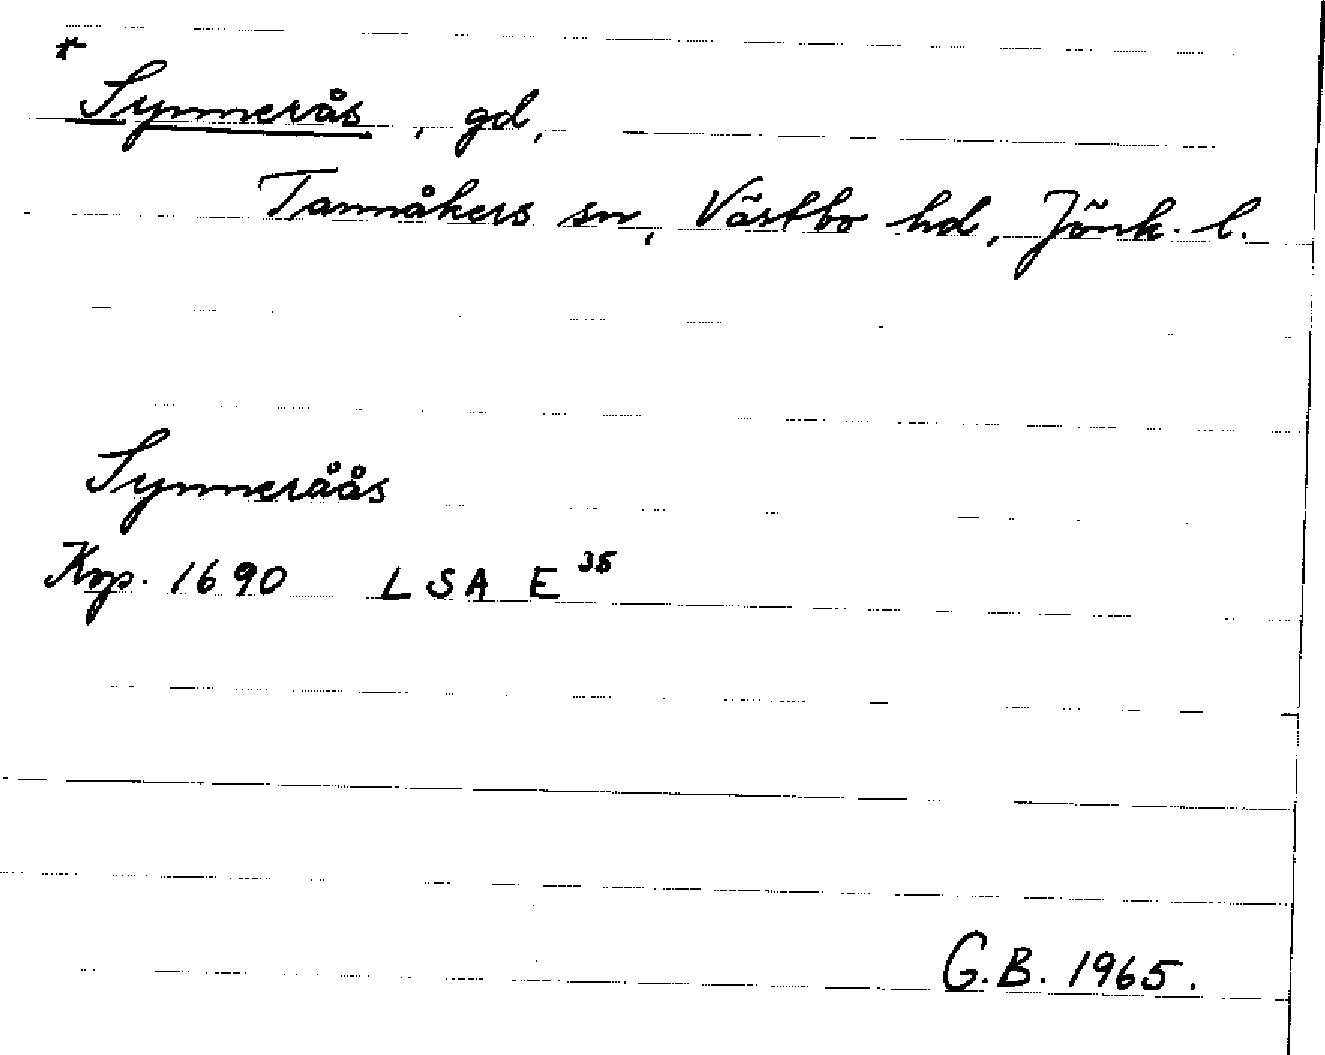 +
Synnerås, gd,
Tannåkers sn, Västbo hd, Jönk. l.
Synneråås
Kop. 1690 LSA E 35
G.B. 1965.